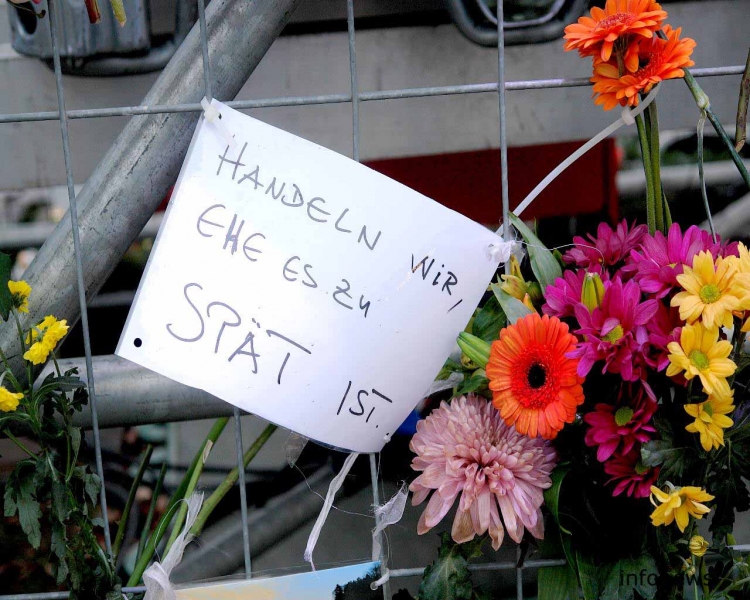 HANDELN WIR,
EHE ES ZU
SPÄT IST.